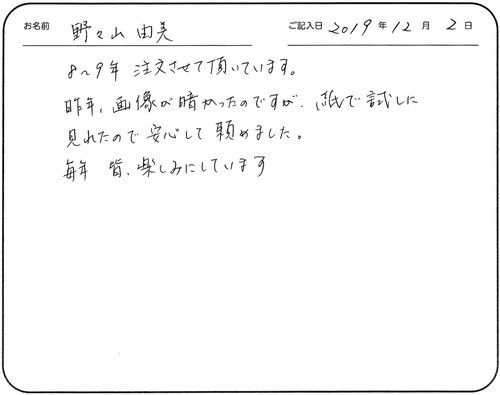 お名前 野々山 由美 ご記入日 2019 年 12 月 2 日
8～9年 注文させて頂いています。
昨年、画像が暗かったのですが、紙で試しに
見れたので安心して頼めました。
毎年 皆、楽しみにしています